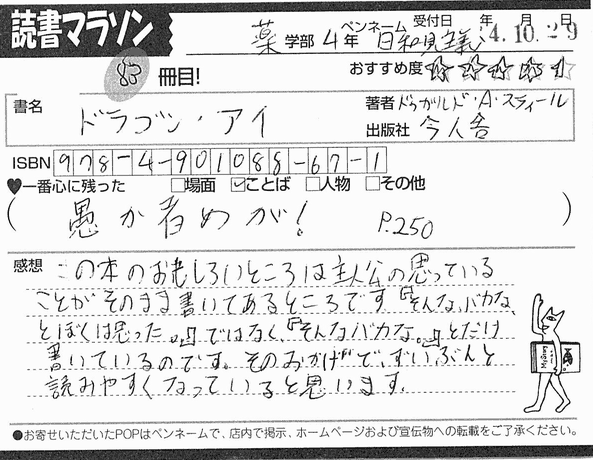 読書マラソン
薬学部4年 ペンネーム 日和見主義 受付日 年 月 日 4.10.29
83冊目! おすすめ度☆☆☆☆☆
書名 ドラゴン・アイ 著者 ドゥガルド・A・スティール
出版社 今人舎
ISBN 978-4-901088-67-1
♥一番心に残った □場面 ☑ことば □人物 □その他
(愚か者めが! P.250)
感想 この本のおもしろいところは主人公の思っている
ことがそのまま書いてあるところです『そんな、バカな、
とぼくは思った。』ではなく、『そんなバカな。』とだけ
書いているのです。そのおかげで、ずいぶんと
読みやすくなっていると思います。
●お寄せいただいたPOPはペンネームで、店内で掲示、ホームページおよび宣伝物への転載をご了承ください。